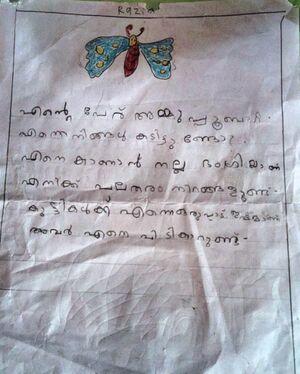 Razin
എന്റെ പേര് അമ്മു പൂമ്പാറ്റ.
എന്നെ നിങ്ങൾ കണ്ടിട്ടുണ്ടോ?
എന്നെ കാണാൻ നല്ല ഭംഗിയാണ്
എനിക്ക് പലതരം നിറങ്ങളുണ്ട്.
കുട്ടികൾക്ക് എന്നെ ഒരുപാട് ഇഷ്ടമാണ്
അവർ എന്നെ പിടിക്കാറുണ്ട്.